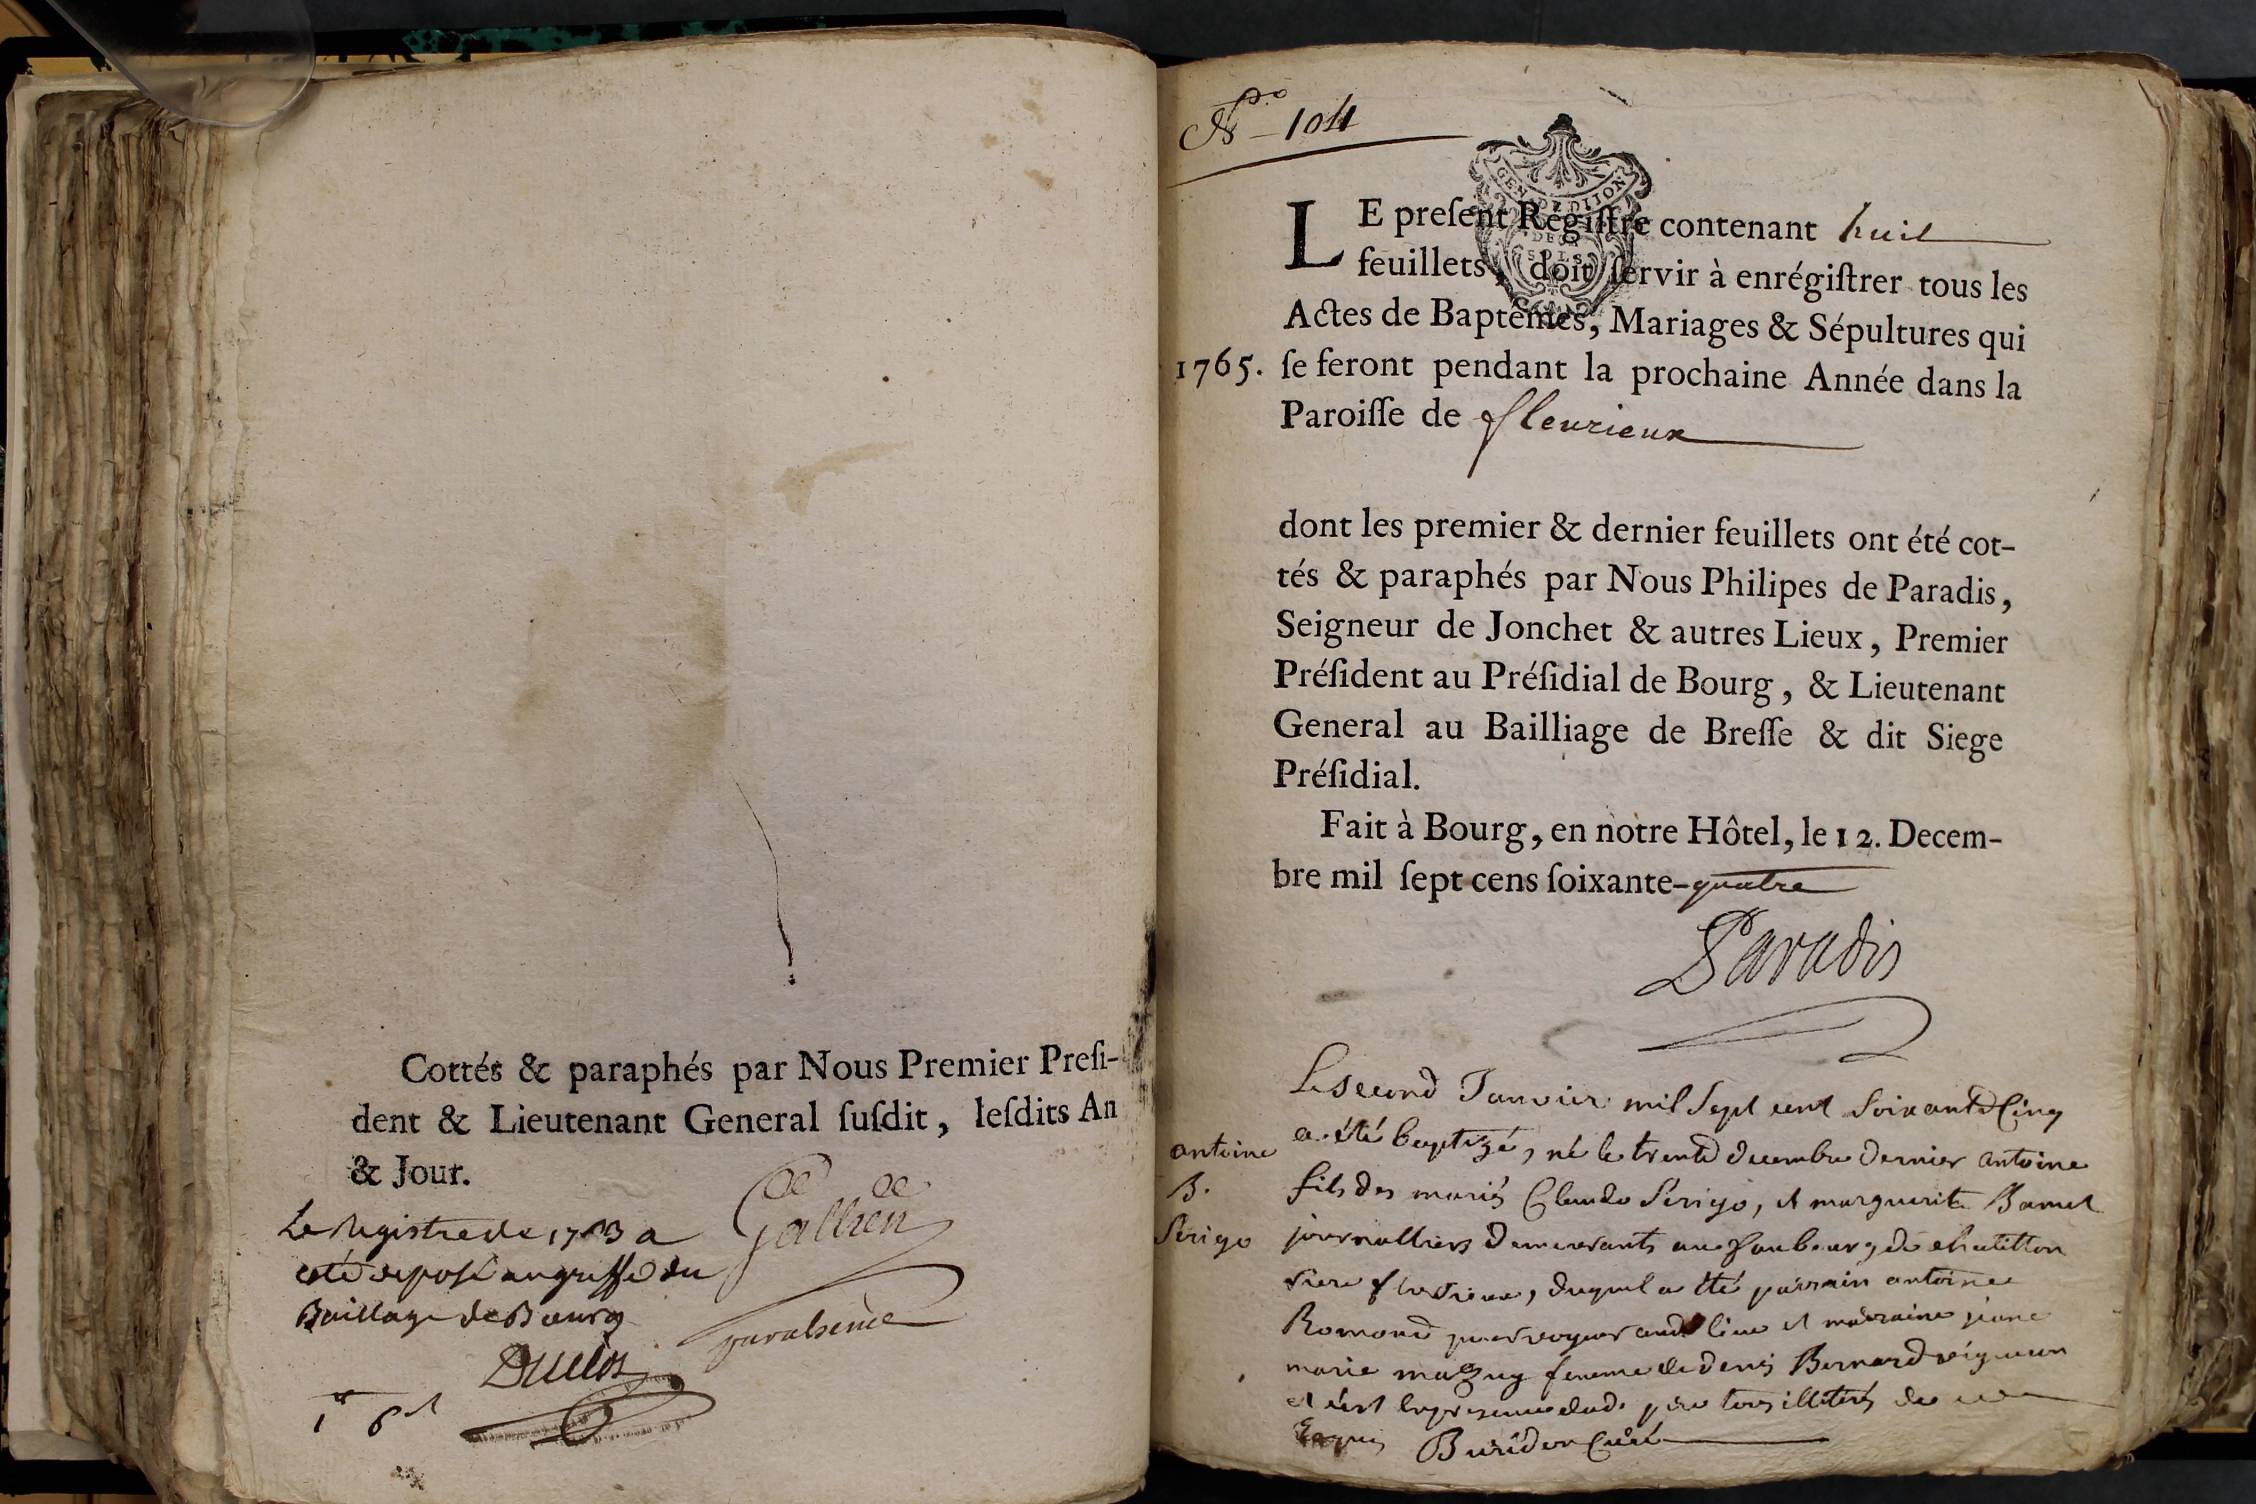 Cottés & paraphés par Nous Premier Preſi-
dent & Lieutenant General ſuſdit, leſdits An
& Jour.
Le Registre de 1763 a
eté deposé au greffe du
Baillage de Bourg
Duclos
Nº 104
GEN DE DIJON
LE preſent Régiſtre contenant huit
feuillets, doit ſervir à enrégiſtrer tous les
Actes de Baptêmes, Mariages & Sépultures qui
1765. ſe feront pendant la prochaine Année dans la
Paroiſſe de fleurieux
dont les premier & dernier feuillets ont été cot-
tés & paraphés par Nous Philipes de Paradis,
Seigneur de Jonchet & autres Lieux, Premier
Préſident au Préſidial de Bourg, & Lieutenant
General au Bailliage de Breſſe & dit Siege
Préſidial.
Fait à Bourg, en notre Hôtel, le 12. Decem-
bre mil ſept cens ſoixante-quatre
Paradis
Le second Janvier mil Sept cent Soixante Cinq
a été baptizé, né le trente decembre dernier antoine
fils des mariés Claude Serigo, et marguerite
journalliers demeurants au faubourg de chatillon
fleurieux, duquel a été parrain antoine
Romand et marraine jeanne
marie femme de denis Bernard vigneron
et en presence dud. pere tous illiterés de ce
Enquis Buridon Curé
antoine
B.
Serigo